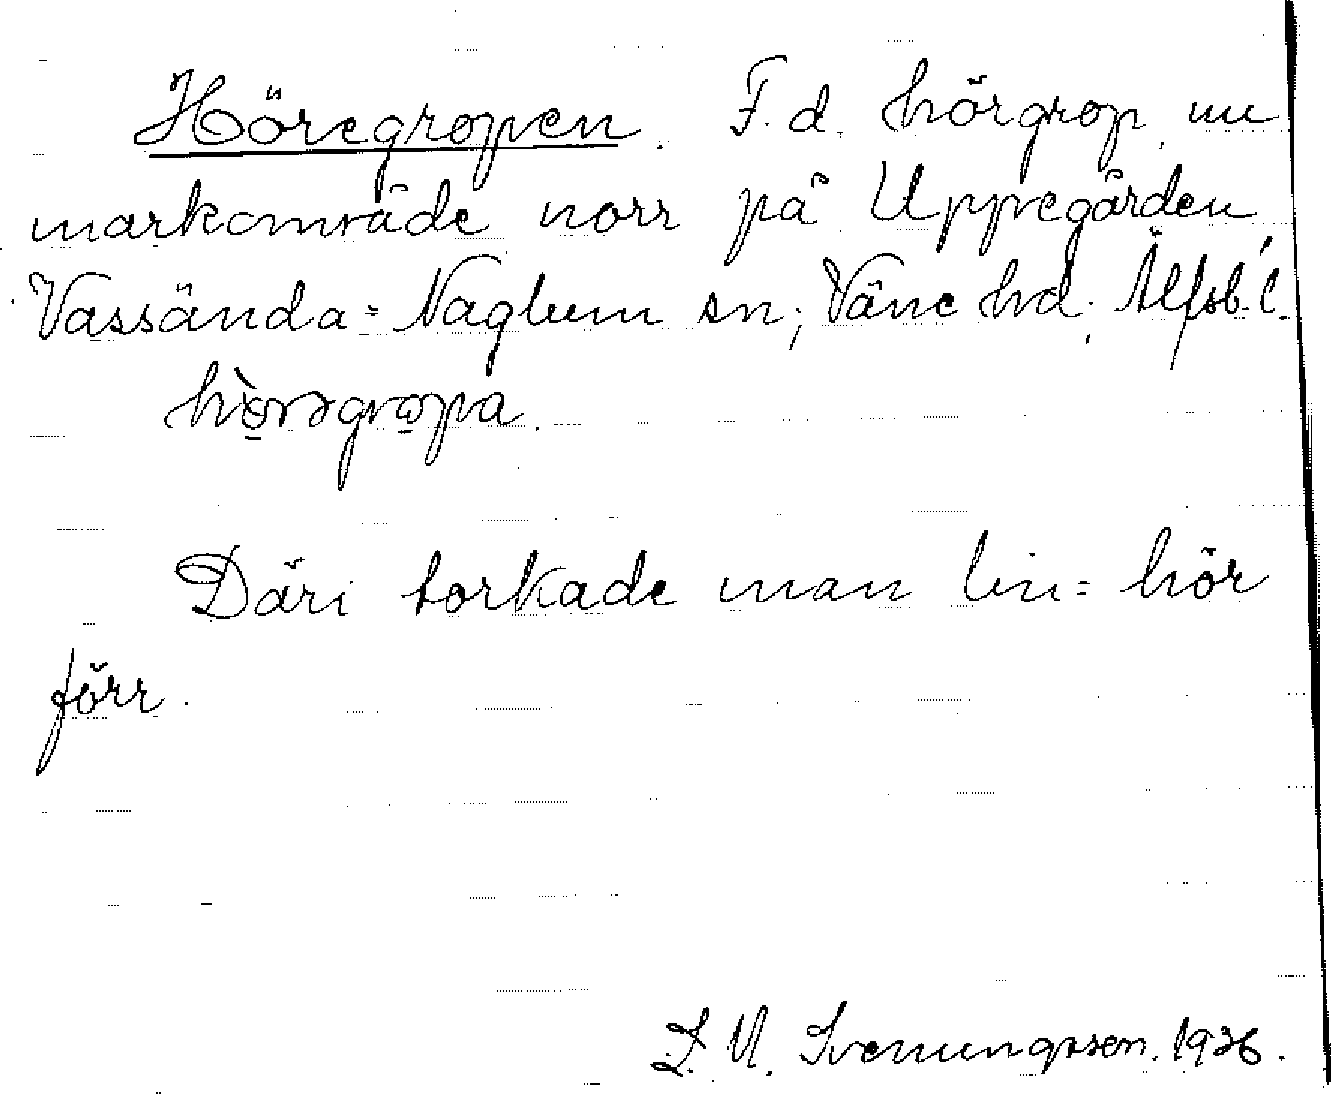 Höregropen. F. d. hörgrop, nu
markområde norr på Uppegården
Vassända=Naglum sn; Väne hd; Älfsb. l.
Däri torkade man lin= hör
förr.
Svenungsson. 1936.